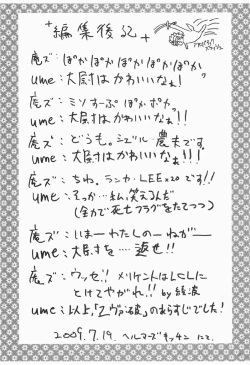 編集後記
庵ズ：ぽかぽかぽかぽかぽか
ume：大尉はかわいいなぁ！
庵ズ：ミソすーぷ ぽかポカ。
ume：大尉はかわいいなぁ!!
庵ズ：どうも。シェル 農夫です。
ume：大尉はかわいいなぁ!!!
庵ズ：ちわ。ランカ・LEE×20 です!!
ume：そっか…私、笑えるんだ
（全力で死亡フラグをたてつつ）
庵ズ：いまーわたしのーねがー
ume：大尉を…返せ!!
庵ズ：ウッゼ！メリケンはLCLに
とけてやがれ!! by 綾波
ume：以上、「ヱヴァ破」のあらすじでした！
2009.7.19. ヘルマーズキッチン にて。